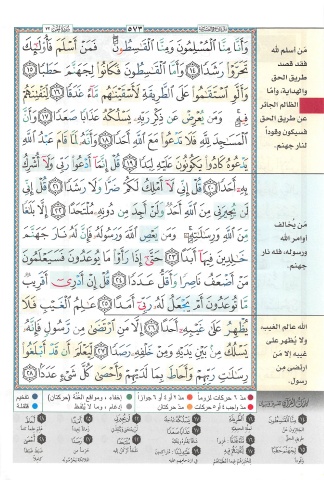 ٥٧٣
وَأَنَّا مِنَّا الْمُسْلِمُونَ وَمِنَّا الْقَاسِطُونَ فَمَنْ أَسْلَمَ فَأُولَٰئِكَ
تَحَرَّوْا رَشَدًا ١٤ وَأَمَّا الْقَاسِطُونَ فَكَانُوا لِجَهَنَّمَ حَطَبًا ١٥
وَأَلَّوِ اسْتَقَامُوا عَلَى الطَّرِيقَةِ لَأَسْقَيْنَاهُم مَّاءً غَدَقًا ١٦ لِّنَفْتِنَهُمْ
فِيهِ وَمَن يُعْرِضْ عَن ذِكْرِ رَبِّهِ يَسْلُكْهُ عَذَابًا صَعَدًا ١٧ وَأَنَّ
الْمَسَاجِدَ لِلَّهِ فَلَا تَدْعُوا مَعَ اللَّهِ أَحَدًا ١٨ وَأَنَّهُ لَمَّا قَامَ عَبْدُ اللَّهِ
يَدْعُوهُ كَادُوا يَكُونُونَ عَلَيْهِ لِبَدًا ١٩ قُلْ إِنَّمَا أَدْعُو رَبِّي وَلَا أُشْرِكُ
بِهِ أَحَدًا ٢٠ قُلْ إِنِّي لَا أَمْلِكُ لَكُمْ ضَرًّا وَلَا رَشَدًا ٢١ قُلْ إِنِّي
لَن يُجِيرَنِي مِنَ اللَّهِ أَحَدٌ وَلَنْ أَجِدَ مِن دُونِهِ مُلْتَحَدًا ٢٢ إِلَّا بَلَاغًا
مِّنَ اللَّهِ وَرِسَالَاتِهِ وَمَن يَعْصِ اللَّهَ وَرَسُولَهُ فَإِنَّ لَهُ نَارَ جَهَنَّمَ
خَالِدِينَ فِيهَا أَبَدًا ٢٣ حَتَّىٰ إِذَا رَأَوْا مَا يُوعَدُونَ فَسَيَعْلَمُونَ
مَنْ أَضْعَفُ نَاصِرًا وَأَقَلُّ عَدَدًا ٢٤ قُلْ إِنْ أَدْرِي أَقَرِيبٌ
مَّا تُوعَدُونَ أَمْ يَجْعَلُ لَهُ رَبِّي أَمَدًا ٢٥ عَالِمُ الْغَيْبِ فَلَا
يُظْهِرُ عَلَىٰ غَيْبِهِ أَحَدًا ٢٦ إِلَّا مَنِ ارْتَضَىٰ مِن رَّسُولٍ فَإِنَّهُ
يَسْلُكُ مِن بَيْنِ يَدَيْهِ وَمِنْ خَلْفِهِ رَصَدًا ٢٧ لِّيَعْلَمَ أَن قَدْ أَبْلَغُوا
رِسَالَاتِ رَبِّهِمْ وَأَحَاطَ بِمَا لَدَيْهِمْ وَأَحْصَىٰ كُلَّ شَيْءٍ عَدَدًا ٢٨
من أسلم لله
فقد قصد
طريق الحق
والهداية، وأمّا
الظالم الجائر
عن طريق الحق
فسيكون وقوداً
لنار جهنم.
من يخالف
أوامر الله
ورسوله، فله نار
جهنم.
الله عالم الغيب،
ولا يُظهر على
غيبه إلا من
ارتضى من
رسول.
مدّ ٦ حركات لزوماً
مدّ ٢ أو ٤ أو ٦ جوازاً
إخفاء، ومواقع الغُنَّة (حركتان)
تفخيم
مدّ واجب ٤ أو ٥ حركات
مدّ حركتان
إدغام، وما لا يُلفظ
قلقلة